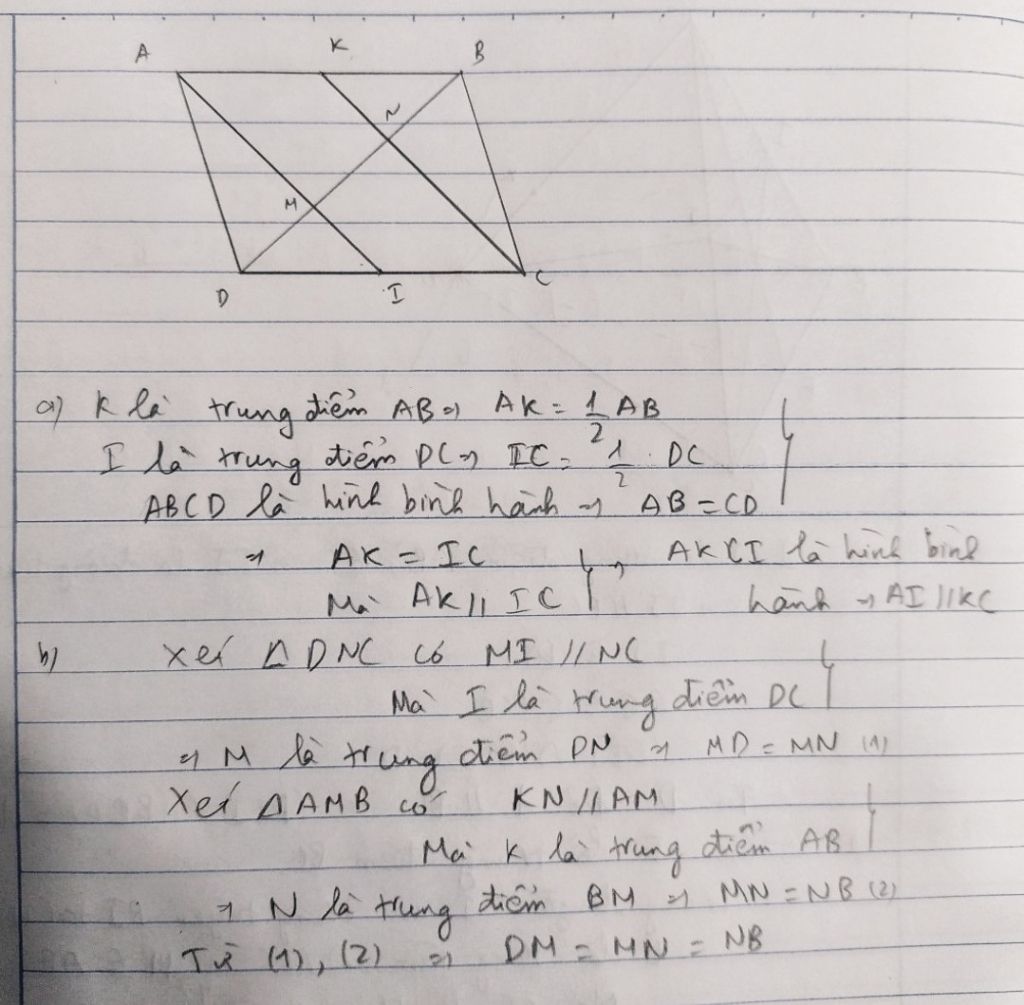 A K B
N
M
D I C
a) K là trung điểm AB ⇒ AK = 1/2 AB
I là trung điểm DC ⇒ IC = 1/2 . DC
ABCD là hình bình hành ⇒ AB = CD
⇒ AK = IC ⇒ AKCI là hình bình
Mà AK // IC hành ⇒ AI // KC
b) Xét △DNC có MI // NC
Mà I là trung điểm DC
⇒ M là trung điểm DN ⇒ MD = MN (1)
Xét △AMB có KN // AM
Mà K là trung điểm AB
⇒ N là trung điểm BM ⇒ MN = NB (2)
Từ (1), (2) ⇒ DM = MN = NB